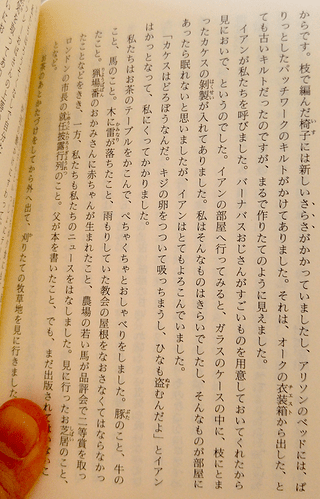 からです。枝で編んだ椅子には新しいさらさがかかっていましたし、アリソンのベッドには、ぱ
りっとしたパッチワークのキルトがかけてありました。それは、オークの衣装箱から出した、と
ても古いキルトだったのですが、まるで作りたてのように見えました。
イアンが私たちを呼びました。バーナバスおじさんがすごいものを用意しておいてくれたから
見においで、というのでした。イアンの部屋へ行ってみると、ガラスのケースの中に、枝にとま
ったカケスの剝製が入れてありました。私はそんなものはきらいでしたし、そんなものが部屋に
あったら眠れないと思いましたが、イアンはとてもよろこんでいました。
「カケスはどろぼうなんだ。キジの卵をつついて吸っちまうし、ひなも盗むんだよ」とイアン
はかっとなって、私にくってかかりました。
私たちはお茶のテーブルをかこんで、ぺちゃくちゃとおしゃべりをしました。豚のこと、牛の
こと、馬のこと。木に雷が落ちたこと、雨もりしていた教会の屋根をなおさなくてはならなかっ
たこと。猟場番のおかみさんに赤ちゃんが生まれたこと、農場の若い馬が品評会で二等賞を取っ
たことなどをきき、一方、私たちも私たちのニュースをはなしました。見に行ったお芝居のこと、
ロンドンの市長の就任披露行列のこと。父が本を書いたこと、でも、まだ出版され
あとかたづけをしてから外へ出て、刈りたての牧草地を見に行きました